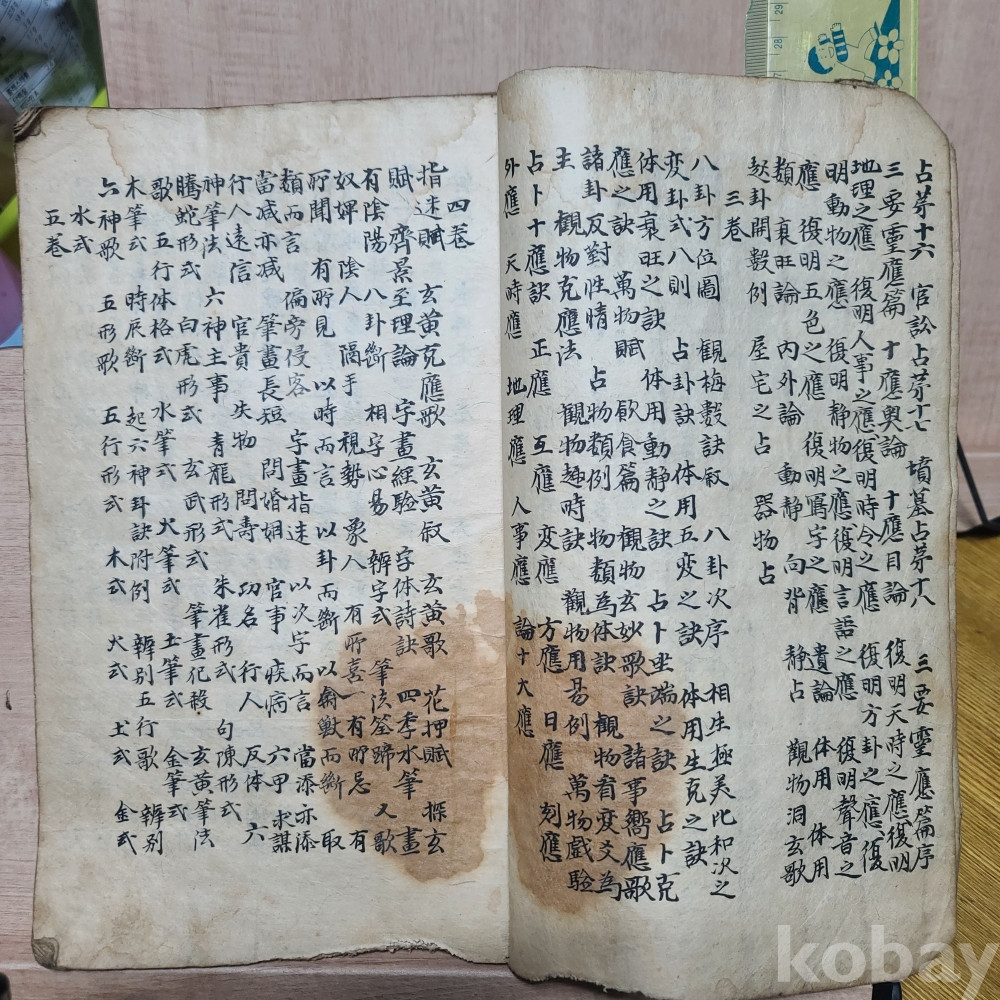 占茅十六 官訟占茅十七 墳墓占茅十八 三要靈應篇序
三要靈應篇 十應奧論 十應目論 復明天時之應復明
地理之應 復明人事之應復明時令之應 復明方卦之應復
明動物之應 復明静物之應復明言語之應 復明聲音之
應 復明五色之應 復明寫字之應 遺論 体用
類 衰旺論 内外論 動静 向背 静占 觀物洞玄歌
起卦開數例 屋宅之占 器物占
三卷
八卦方位圖 觀梅数訣叙 八卦次序 相生極美比和次之
变卦式八則 占卦訣 体用五变之訣 体用生克之訣
体用衰旺之訣 体用動静之訣 占卜坐端之訣 占卜克
應之訣 萬物賦 飮食篇 觀物玄妙歌訣 諸事嚮應歌
諸卦反對性情 占物類例 物類為体訣 觀物看变爻為
主 觀物克應法 觀物趣時訣 觀物用易例 萬物戲驗
占卜十應訣 正應 互應 变應 方應 日應 刻應
外應 天時應 地理應 人事應 論十大應
四卷
指迷賦 玄黄克應歌 玄黄叙 玄黄歌 花押賦 探玄
賦 齊景至理論 字畫經驗 字体詩訣 四季水筆 畫
有陰陽 八卦斷 相字心易 辨字式 筆法筌蹄 又歌
奴婢 陰人 隔手 視勢 象人 有所喜 有所忌 有
所聞 有所見 以時而言 以卦而斷 以禽獸而斷 取
類而言 偏旁侵客 字畫指迷 以次字而言 當添亦添
當减亦减 筆畫長短 問婚姻 官事 疾病 六甲 求謀
行人遠信 官貴 失物 問壽 功名 行人 反体 六
神筆法 六神主事 青龍形式 朱雀形式 句陳形式
騰蛇形式 白虎形式 玄武形式 筆畫犯殺 玄黄筆法
歌 五行体格式 水筆式 火筆式 土筆式 金筆式
木筆式 時辰斷 起六神卦訣附例 辨别五行歌 辨别
六神歌 五形歌 五行形式 木式 火式 土式 金式
水式
五卷
kobay